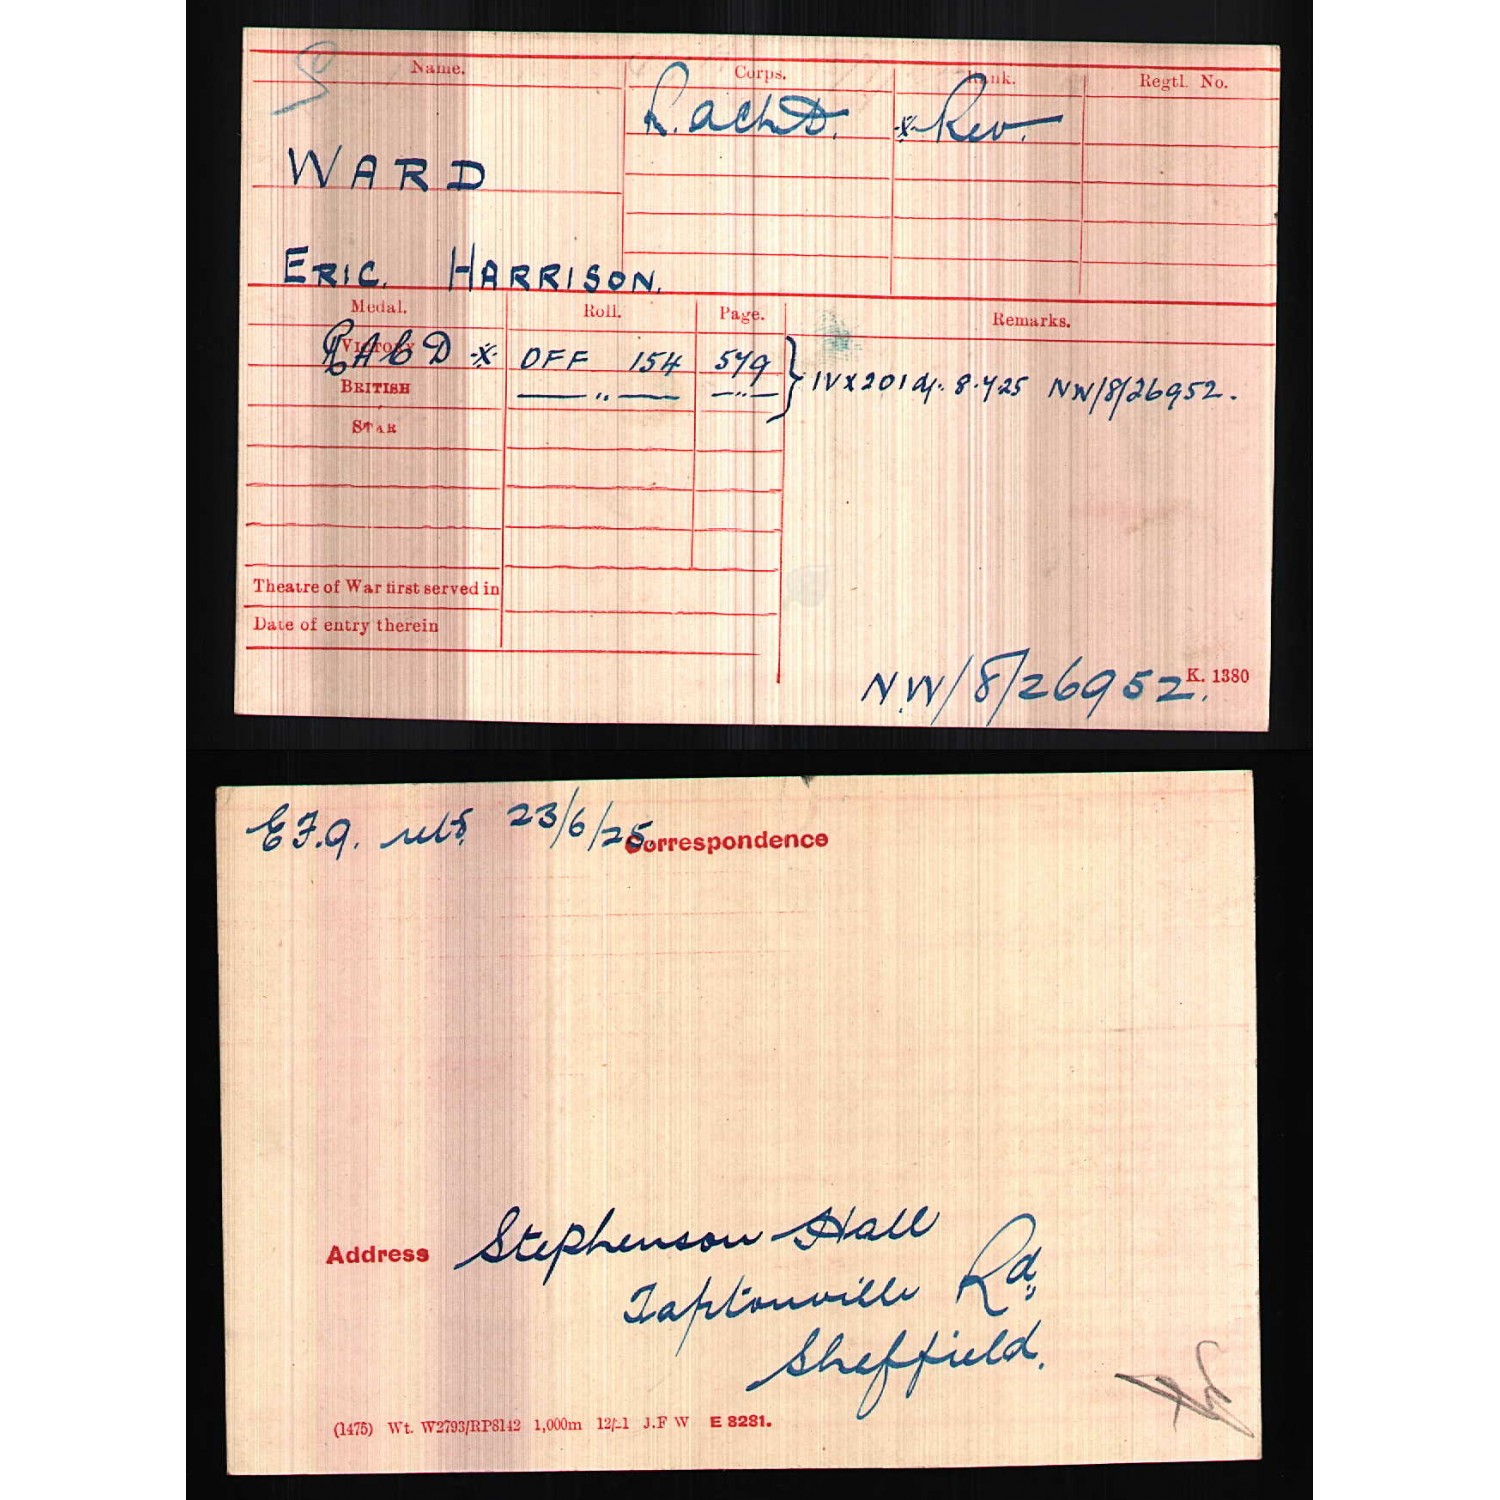 Name. Corps. Rank. Regtl. No.
R.AChD. *Rev.
WARD
ERIC. HARRISON.
Medal. Roll. Page. Remarks.
VICTORY RAChD * OFF 154 579
IVX201 d/. 8.7.25 NW/8/26952.
BRITISH — " — — " —
STAR
Theatre of War first served in
Date of entry therein
N.W/8/26952. K. 1380
E.F.9. 23/6/25.
Correspondence
Address Stephenson Hall
Taptonville Rd.,
Sheffield.
(1475) Wt. W2793/RP8142 1,000m 12/21 J.F W E 8281.